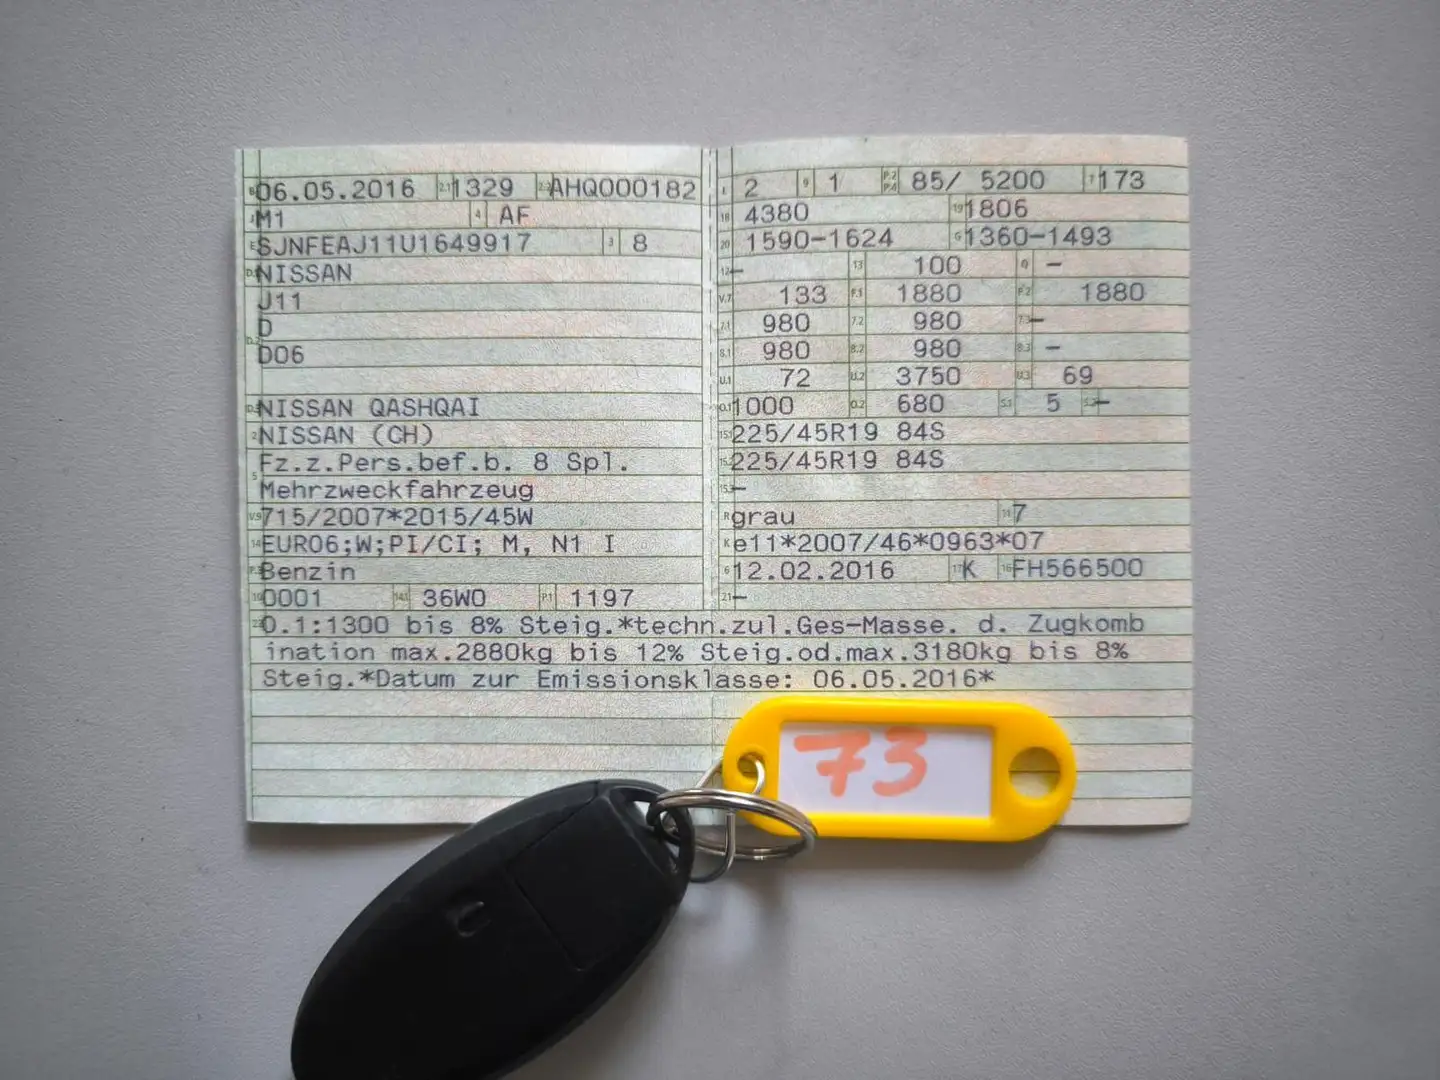 B 06.05.2016 2.1 1329 2.2 AHQ000182
J M1 4 AF
E SJNFEAJ11U1649917 3 8
D.1 NISSAN
J11
D.2 D
D06
D.3 NISSAN QASHQAI
2 NISSAN (CH)
5 Fz.z.Pers.bef.b. 8 Spl.
Mehrzweckfahrzeug
V.9 715/2007*2015/45W
14 EURO6;W;PI/CI; M, N1 I
P.3 Benzin
10 0001 14.1 36W0 P.1 1197
L 2 9 1 P.2 P.4 85/ 5200 T 173
18 4380 19 1806
20 1590-1624 G 1360-1493
12 — 13 100 Q —
V.7 133 F.1 1880 F.2 1880
7.1 980 7.2 980 7.3 —
8.1 980 8.2 980 8.3 —
U.1 72 U.2 3750 U.3 69
O.1 1000 O.2 680 S.1 5 S.2 —
15.1 225/45R19 84S
15.2 225/45R19 84S
15.3 —
R grau 11 7
K e11*2007/46*0963*07
6 12.02.2016 17 K 16 FH566500
21 —
22 O.1:1300 bis 8% Steig.*techn.zul.Ges-Masse. d. Zugkomb
ination max.2880kg bis 12% Steig.od.max.3180kg bis 8%
Steig.*Datum zur Emissionsklasse: 06.05.2016*
73